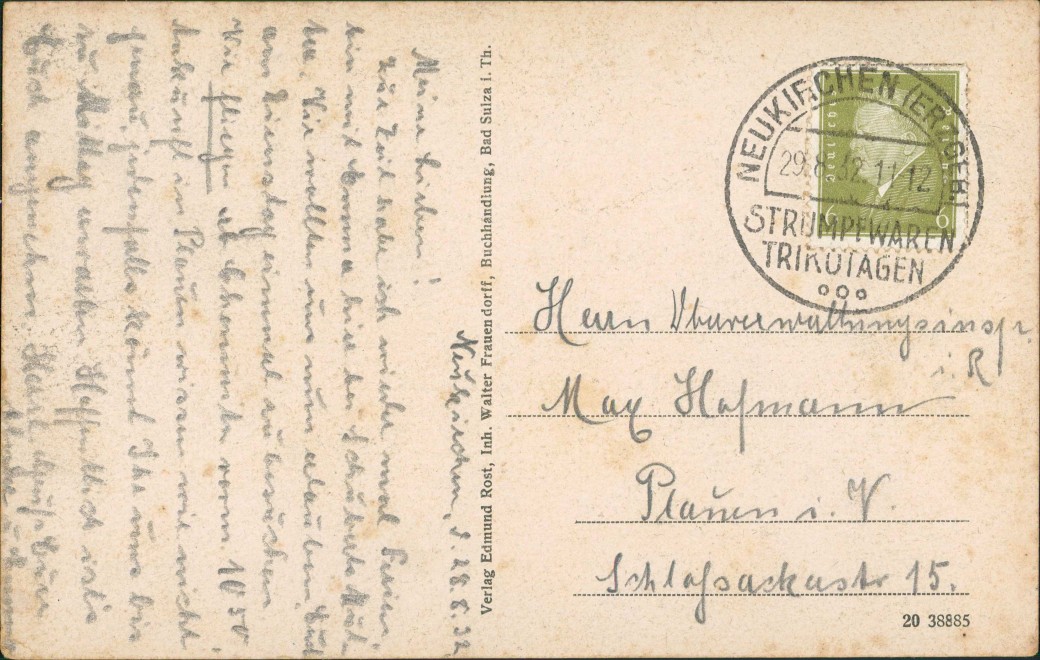 Neukirchen, d. 28.8.32
Meine Lieben!
Zur Zeit habe ich wieder mal Ferien,
bin mit Emma hier bei Schuberts
Wir wollten uns nun erlauben, Euch
am Dienstag einmal zu besuchen
Wir fliegen ab Chemnitz vorm. 10 50
Ankunft in Plauen wissen wir nicht
genau, jedenfalls könnt Ihr uns bis
zu Mittag erwarten. Hoffentlich ists
Euch angenehm. Herzl. Grüße Eure
Verlag Edmund Rost, Inh. Walter Frauendorff, Buchhandlung, Bad Sulza i. Th.
Deutsches Reich
6 6
NEUKIRCHEN (ERZGEB)
29.8.32.11-12
STRUMPFWAREN
TRIKOTAGEN
Herrn Oberverwaltungsinspr.
i. R
Max Hofmann
Plauen i. V.
Schloßackerstr 15.
20 38885